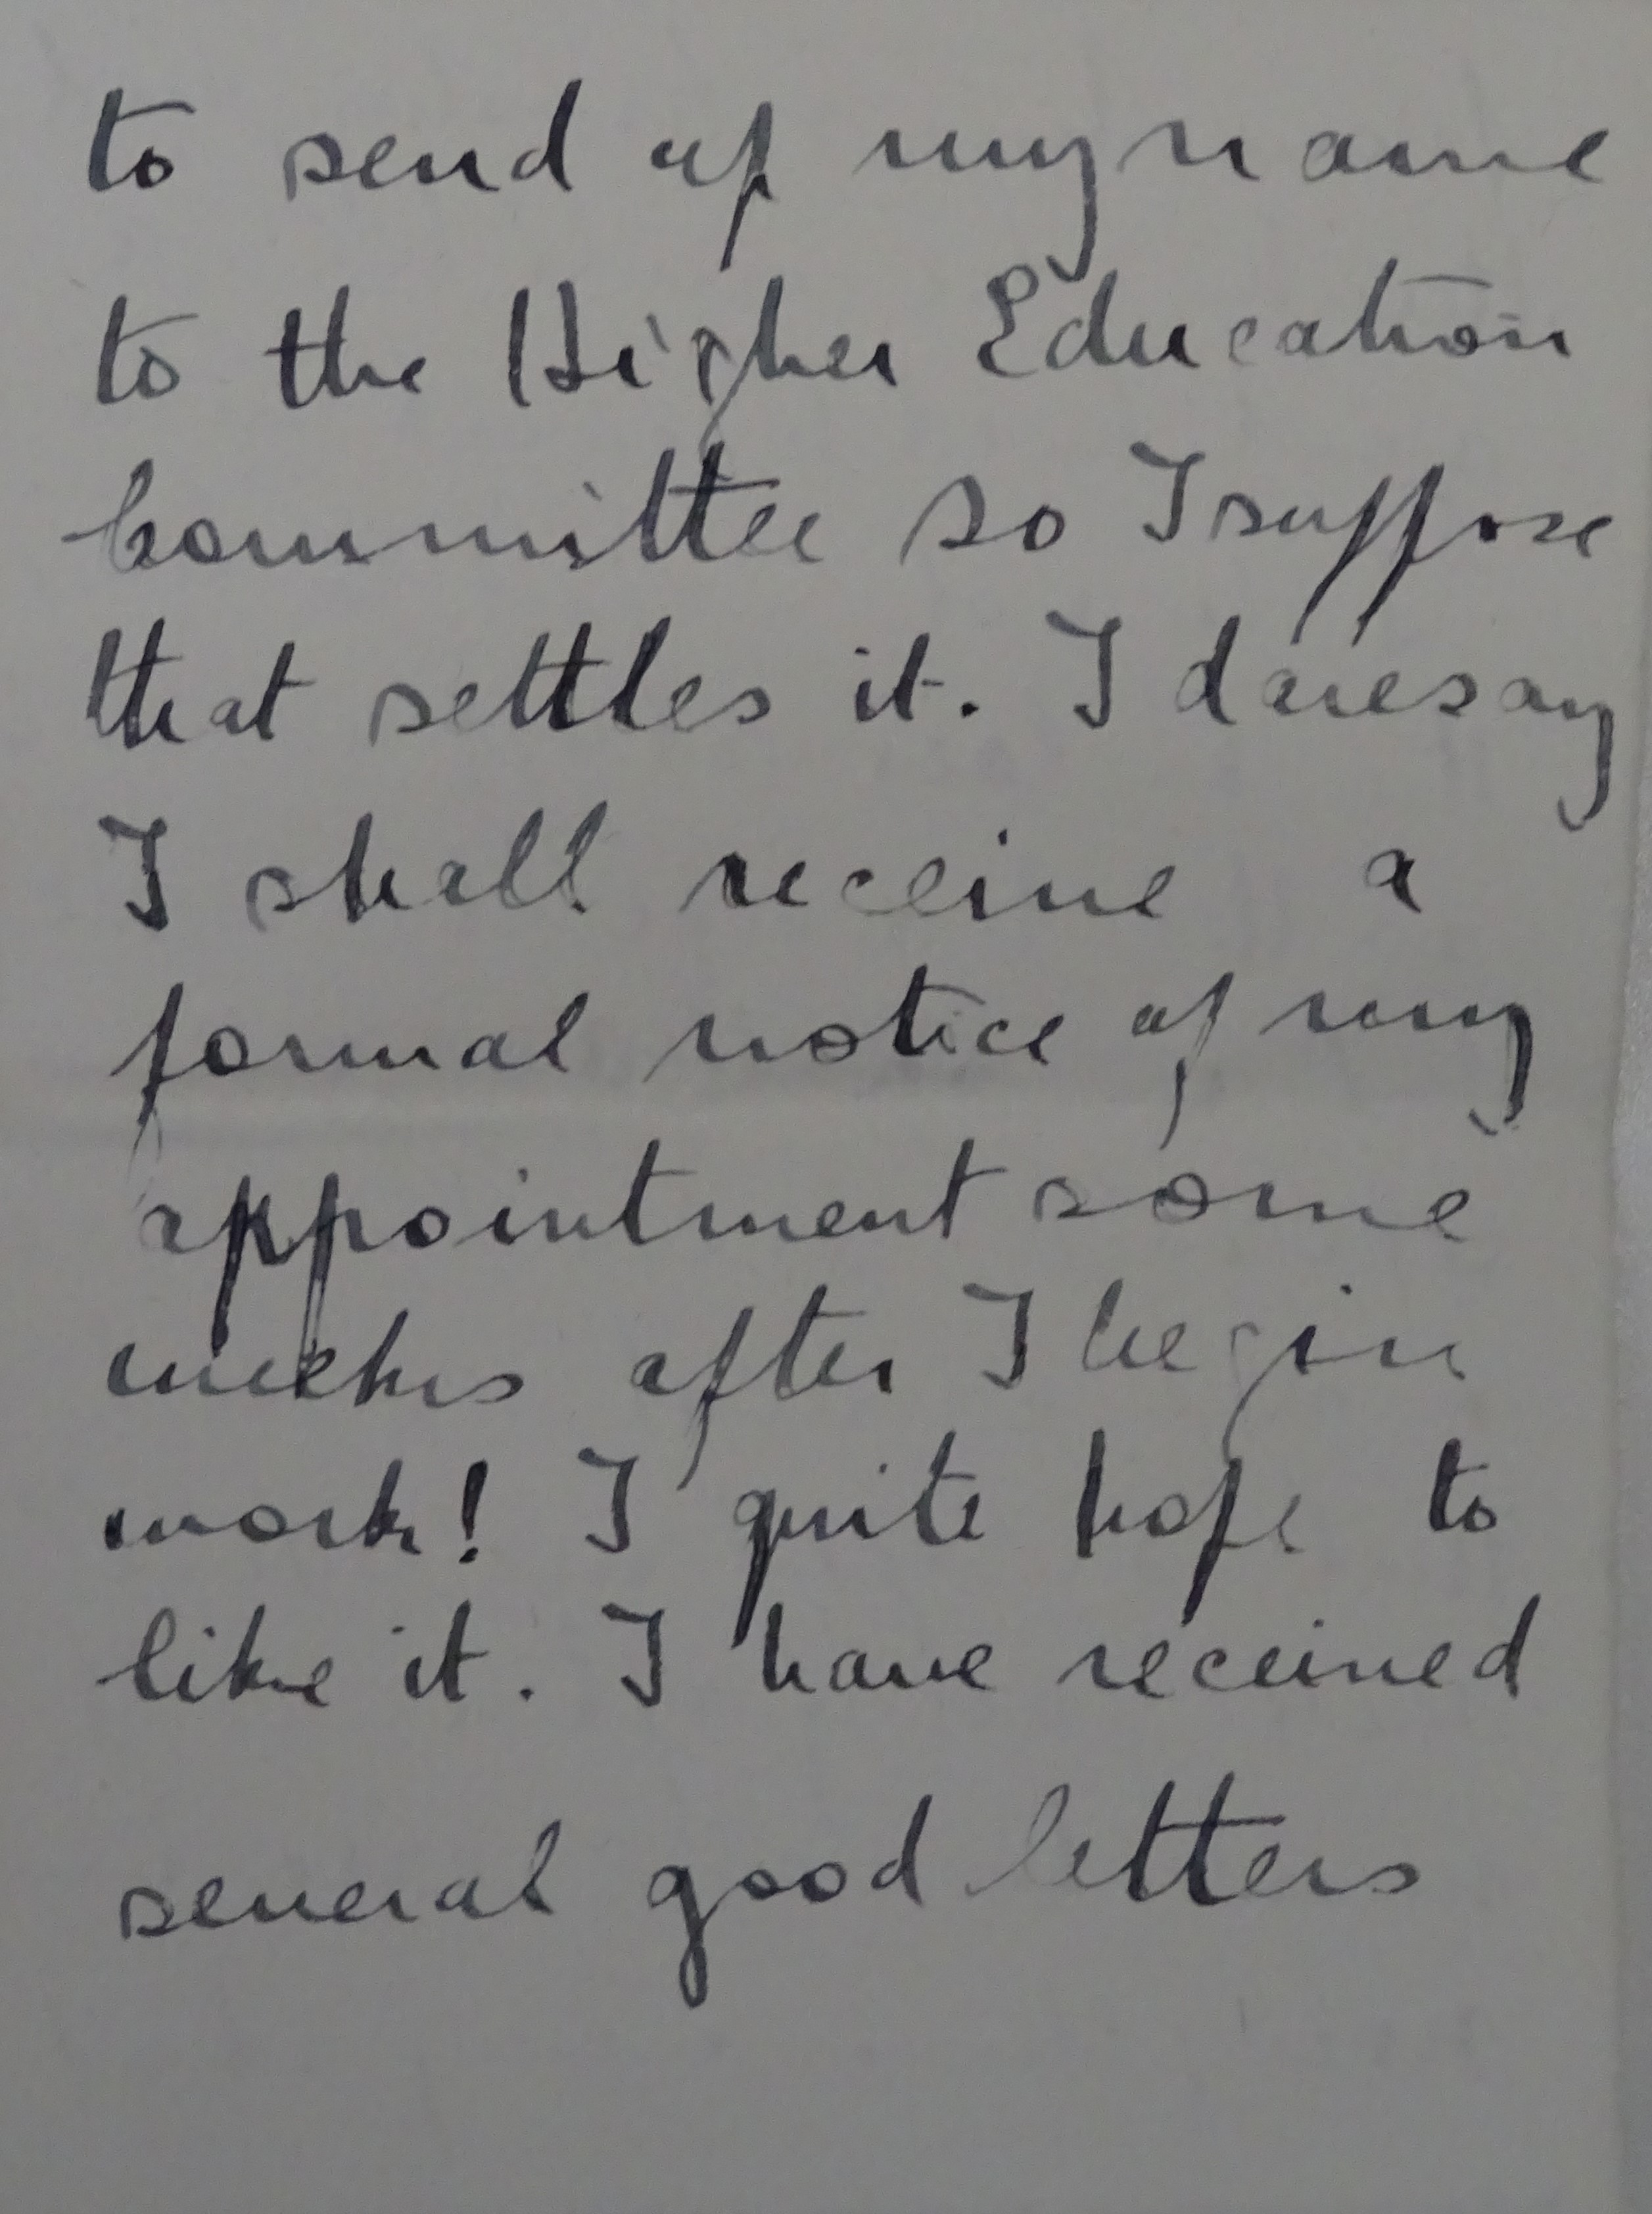 to send up my name
to the Higher Education
Committee so I suppose
that settles it. I daresay
I shall receive a
formal notice of my
appointment some
weeks after I begin
work! I quite hope to
like it. I have received
several good letters